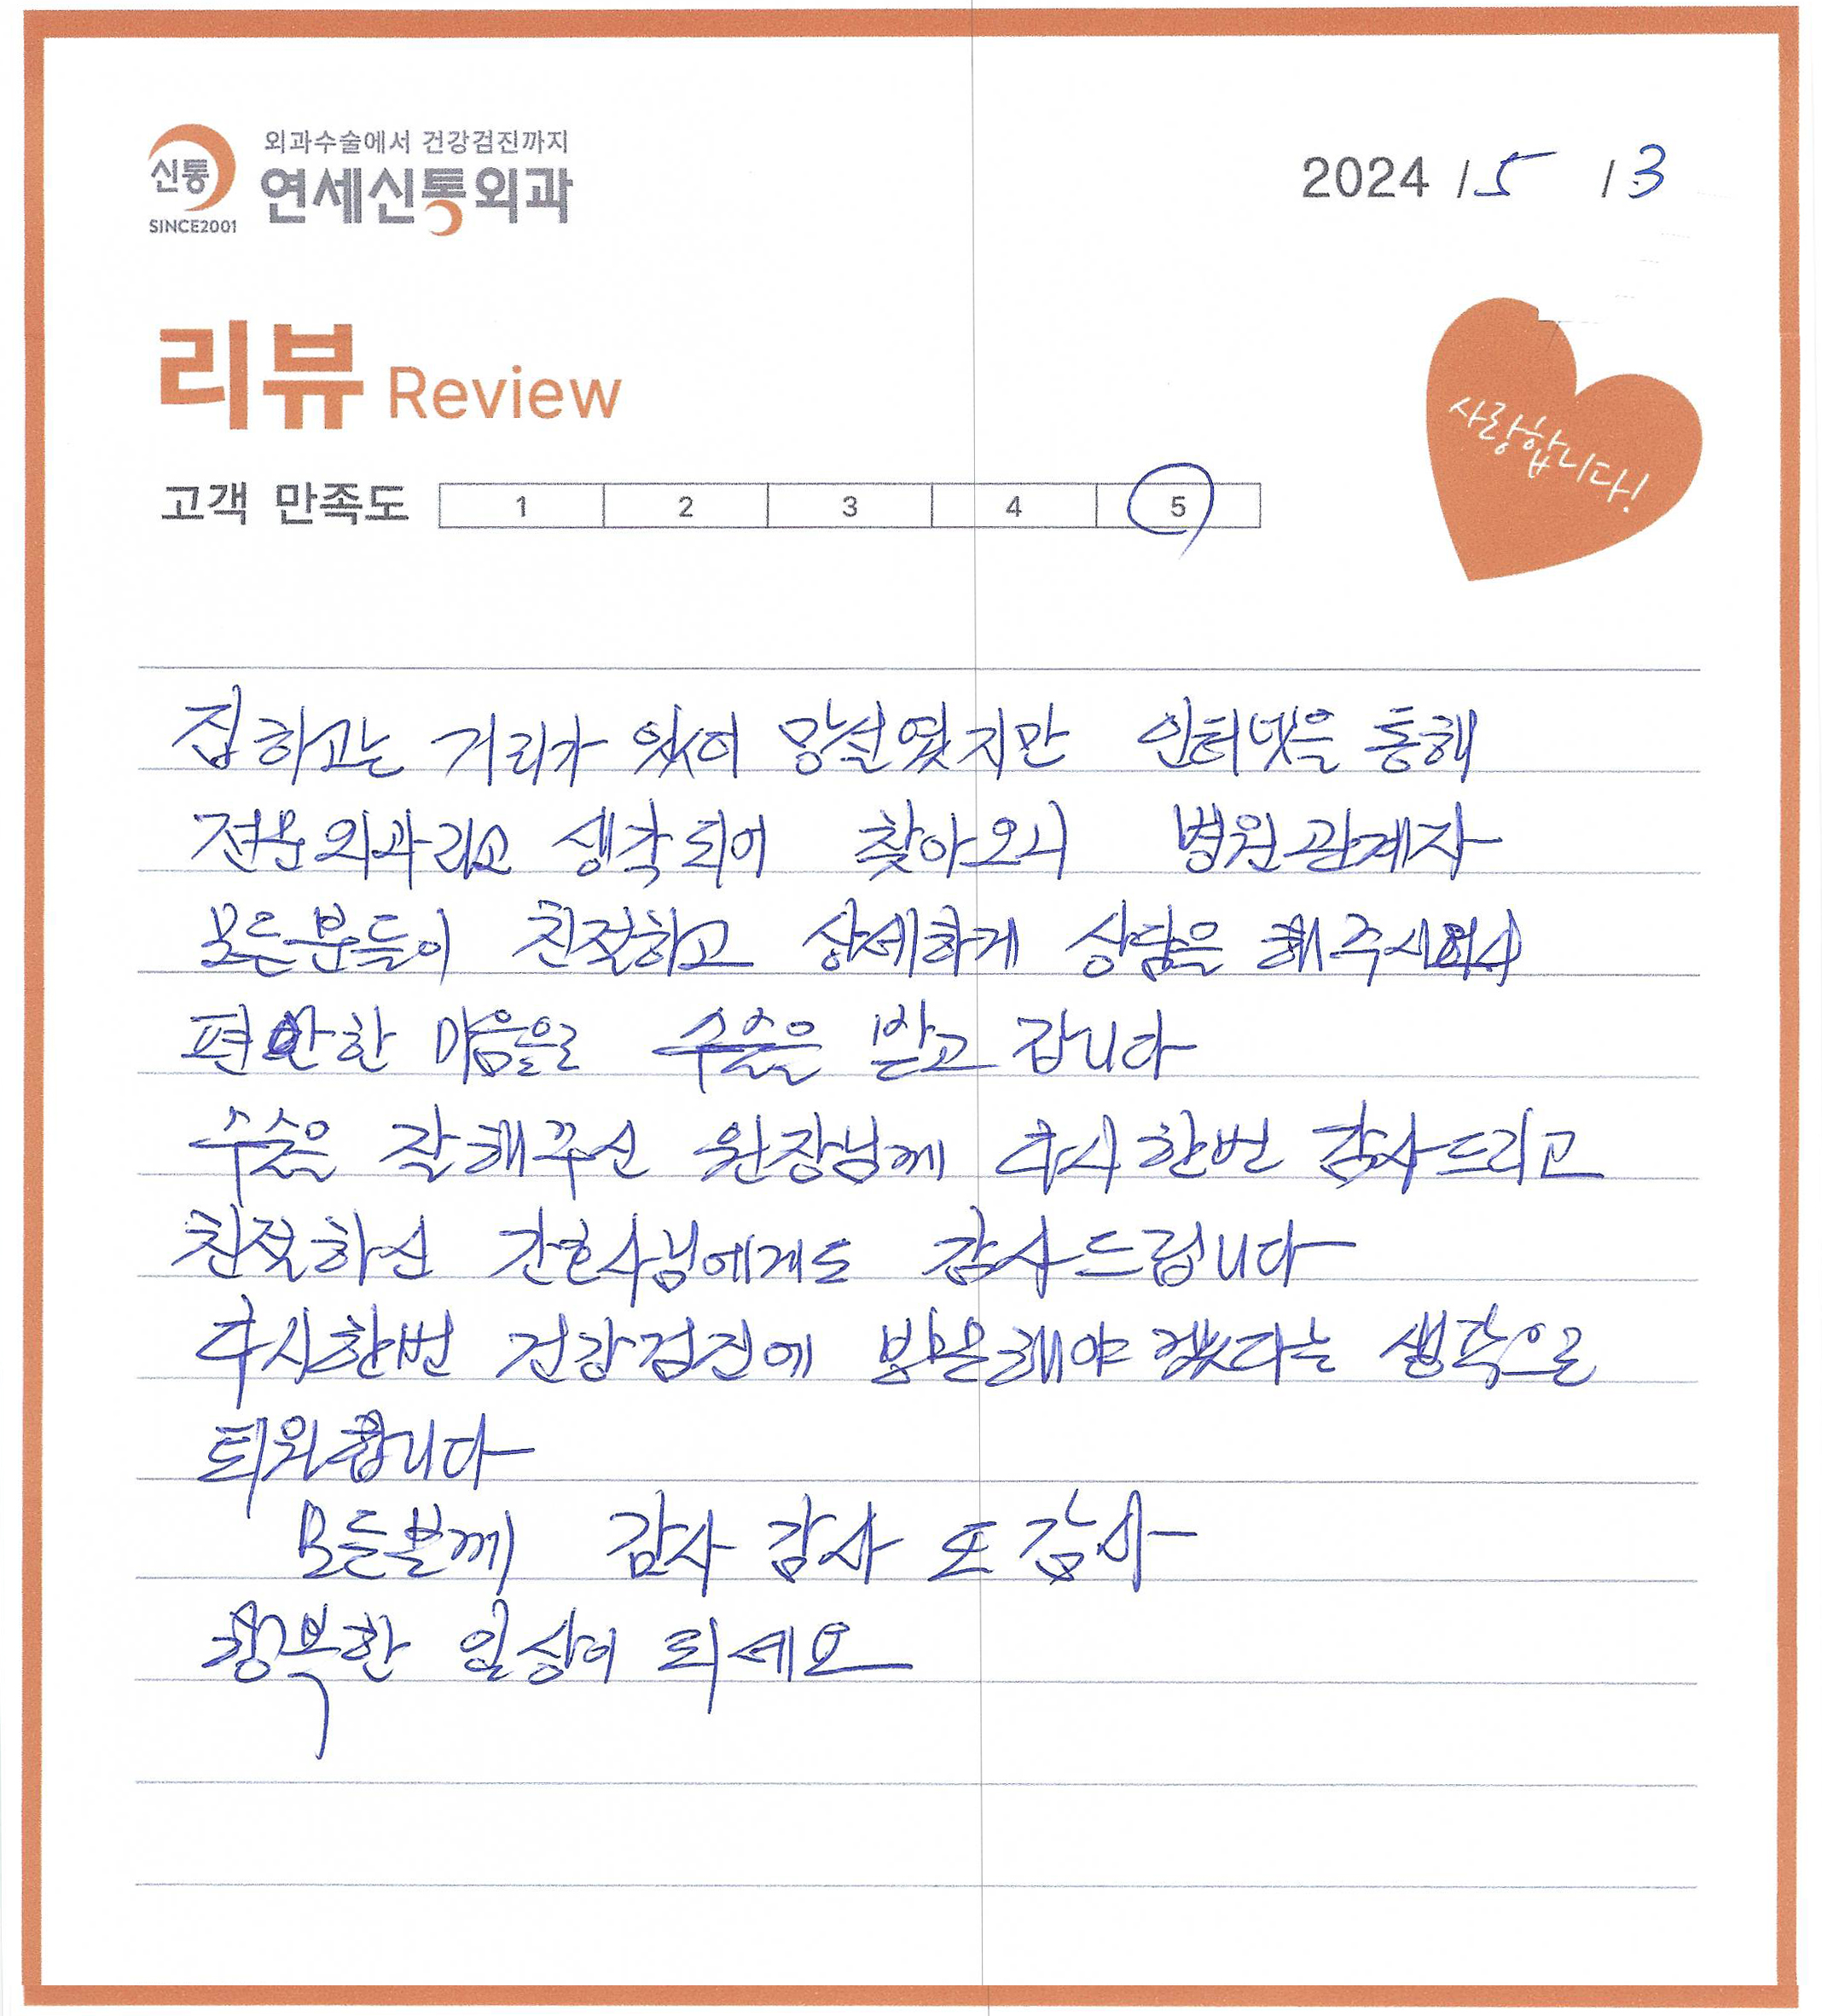 신통
SINCE2001
외과수술에서 건강검진까지
연세신통외과
2024 / 5 / 3
리뷰 Review
사랑합니다!
고객 만족도 1 2 3 4 5
집하고는 거리가 있어 망설였지만 인터넷을 통해
전문외과라고 생각되어 찾아오니 병원관계자
모든분들이 친절하고 상세하게 상담을 해주시어서
편안한 마음으로 수술을 받고 갑니다
수술을 잘해주신 원장님께 다시한번 감사드리고
친절하신 간호사님에게도 감사드립니다
다시한번 건강검진에 방문해야겠다는 생각으로
퇴원합니다
모든분께 감사 감사 또 감사
행복한 일상이 되세요